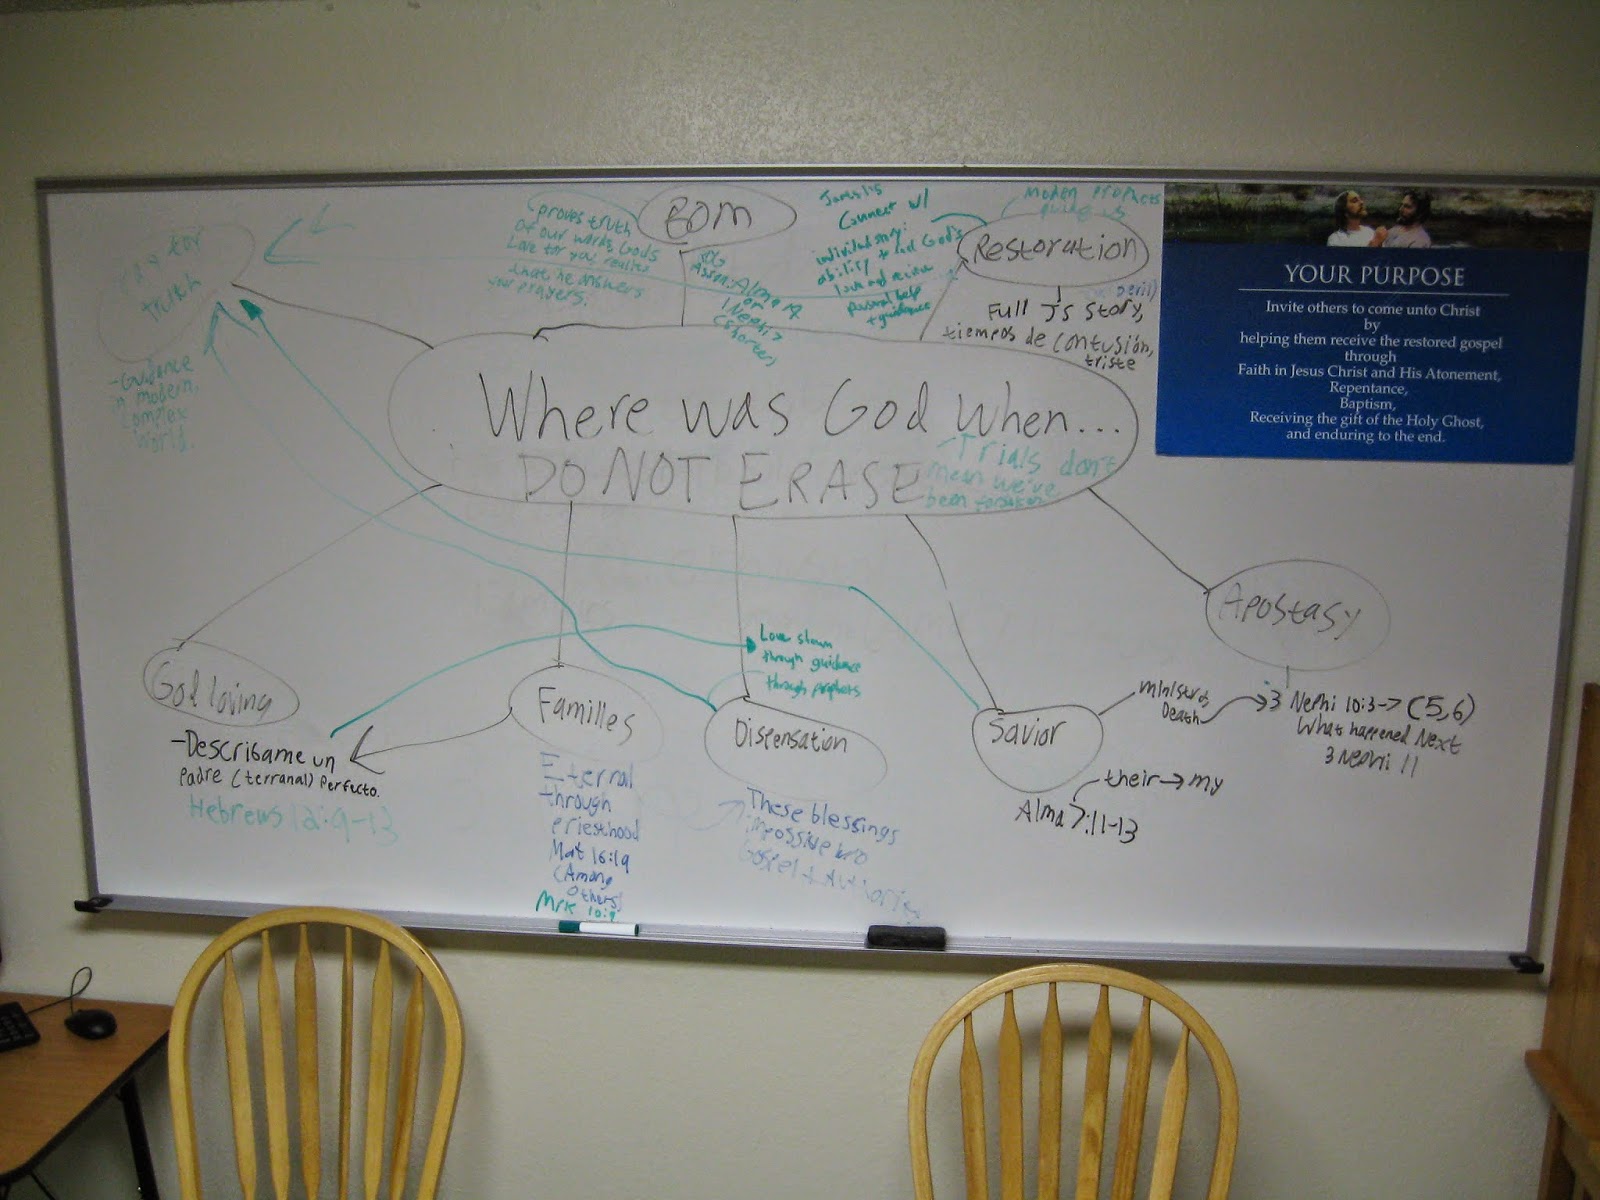 BOM
proves truth
of our words, Gods
Love for you, reality
that he answers
your prayers.
Assn: Alma
or
1 Nephi 7
(shorter)
Connect w/
individual story:
ability to feel God's
love and
personal help
+ guidance
Modern Prophets
guide us
Restoration
Full JS Story,
tiempos de confusión,
triste
for
truth
-Guidance
in modern,
complex
world.
Where was God when...
DO NOT ERASE
-Trials don't
mean we've
been forsaken
YOUR PURPOSE
Invite others to come unto Christ
by
helping them receive the restored gospel
through
Faith in Jesus Christ and His Atonement,
Repentance,
Baptism,
Receiving the gift of the Holy Ghost,
and enduring to the end.
God loving
-Describame un
Padre (terranal) Perfecto.
Hebrews 12:9-13
Familles
Eternal
through
Priesthood
Mat 16:19
(Among
others)
Mrk 10:9
Love shown
through guidance
through prophets
Dispensation
These blessings
impossible w/o
Gospel + Authority
Savior
ministro,
Death
their → my
Alma 7:11-13
Apostasy
3 Nephi 10:3 → (5,6)
What happened Next
3 Nephi 11